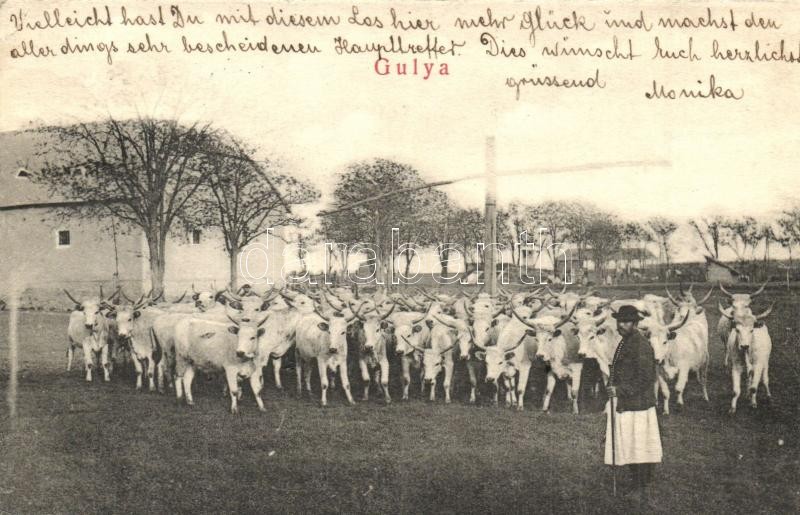 Vielleicht hast Du mit diesem Los hier mehr Glück und machst den
allerdings sehr bescheidenen Haupttreffer. Dies wünscht Euch herzlichst
Gulya
grüssend Monika
durabanth